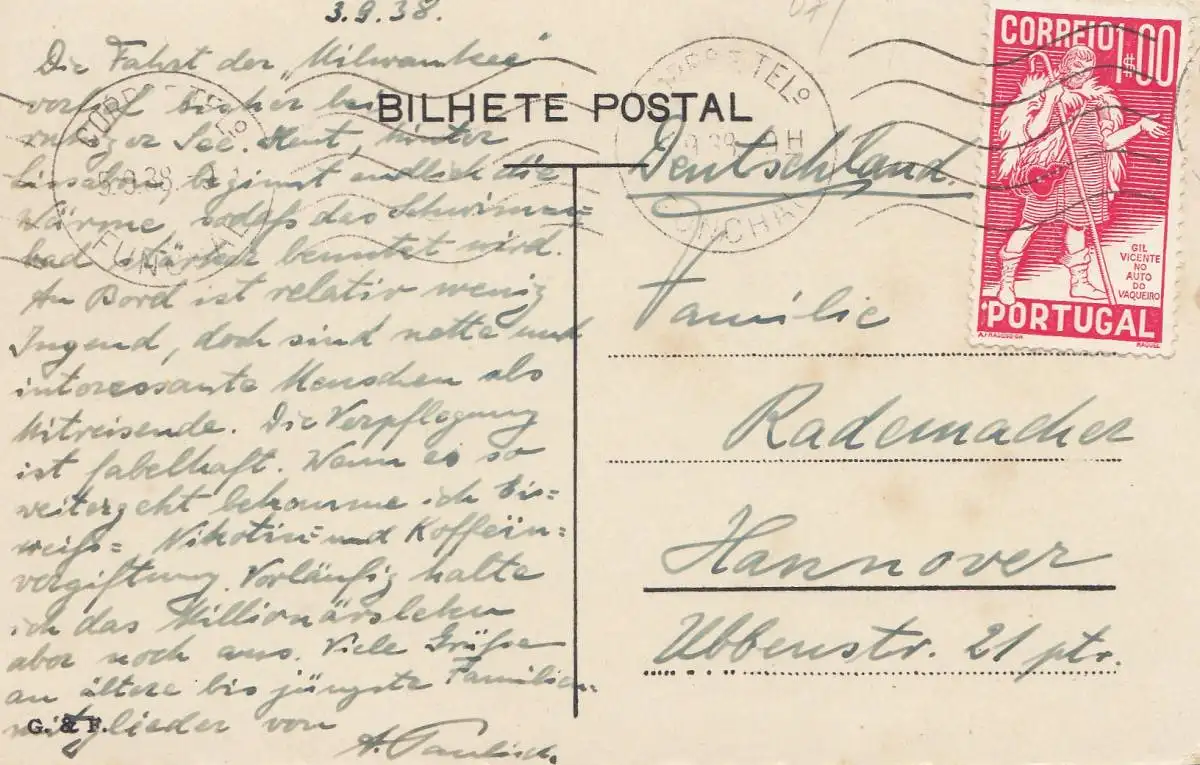 3.9.38.
Die Fahrt der „Milwaukee"
verlief bisher bei
ruhiger See. Heut, hinter
Lissabon, beginnt endlich die
Wärme, sodaß das Schwimm=
bad stärker benutzt wird.
An Bord ist relativ wenig
Jugend, doch sind nette und
interessante Menschen als
Mitreisende. Die Verpflegung
ist fabelhaft. Wenn es so
weitergeht bekomme ich Eis=
weiß= Nikotin= und Koffein-
vergiftung. Vorläufig halte
ich das Millionärsleben
aber noch aus. Viele Grüße
an ältere bis jüngste Familien=
mitglieder von
BILHETE POSTAL
Deutschland.
Familie
Rademacher
Hannover
Ubbenstr. 21 ptr.
G. & F.
CORREIO 1$00
GIL
VICENTE
NO
AUTO
DO
VAQUEIRO
PORTUGAL
FUNCHAL
FUNCHAL